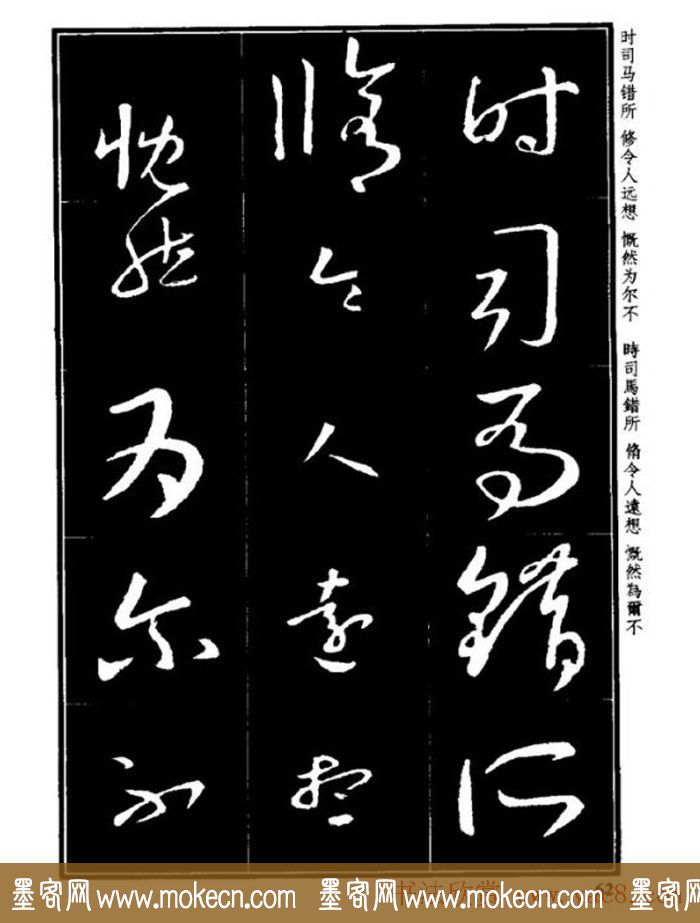 时司馬錯所
脩令人遠想
慨然为尔不
时司马错所 修令人远想 慨然为尔不
時司馬錯所 脩令人遠想 慨然為爾不
墨客网 www.mokecn.com 墨客网 www.mokecn.com 墨客网 www.mokecn.com
62